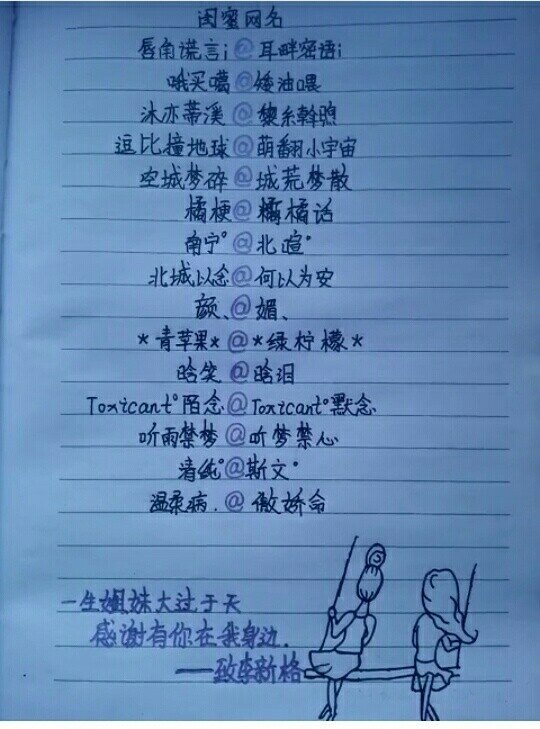 闺蜜网名
唇角谎言i@耳畔密语i
哦买噶@矮油喂
沐亦蒂溪@黎糸斡煦
逗比撞地球@萌翻小宇宙
空城梦碎@城荒梦散
橘梗@橘橘话
南宁°@北喧°
北城以念@何以为安
颜、@媚、
*青苹果*@*绿柠檬*
晗笑@晗泪
Toxicant°陌念@Toxicant°默念
听雨禁梦@听梦禁心
清纯°@斯文°
温柔病.@傲娇命
一生姐妹大过于天
感谢有你在我身边.
——致李新格